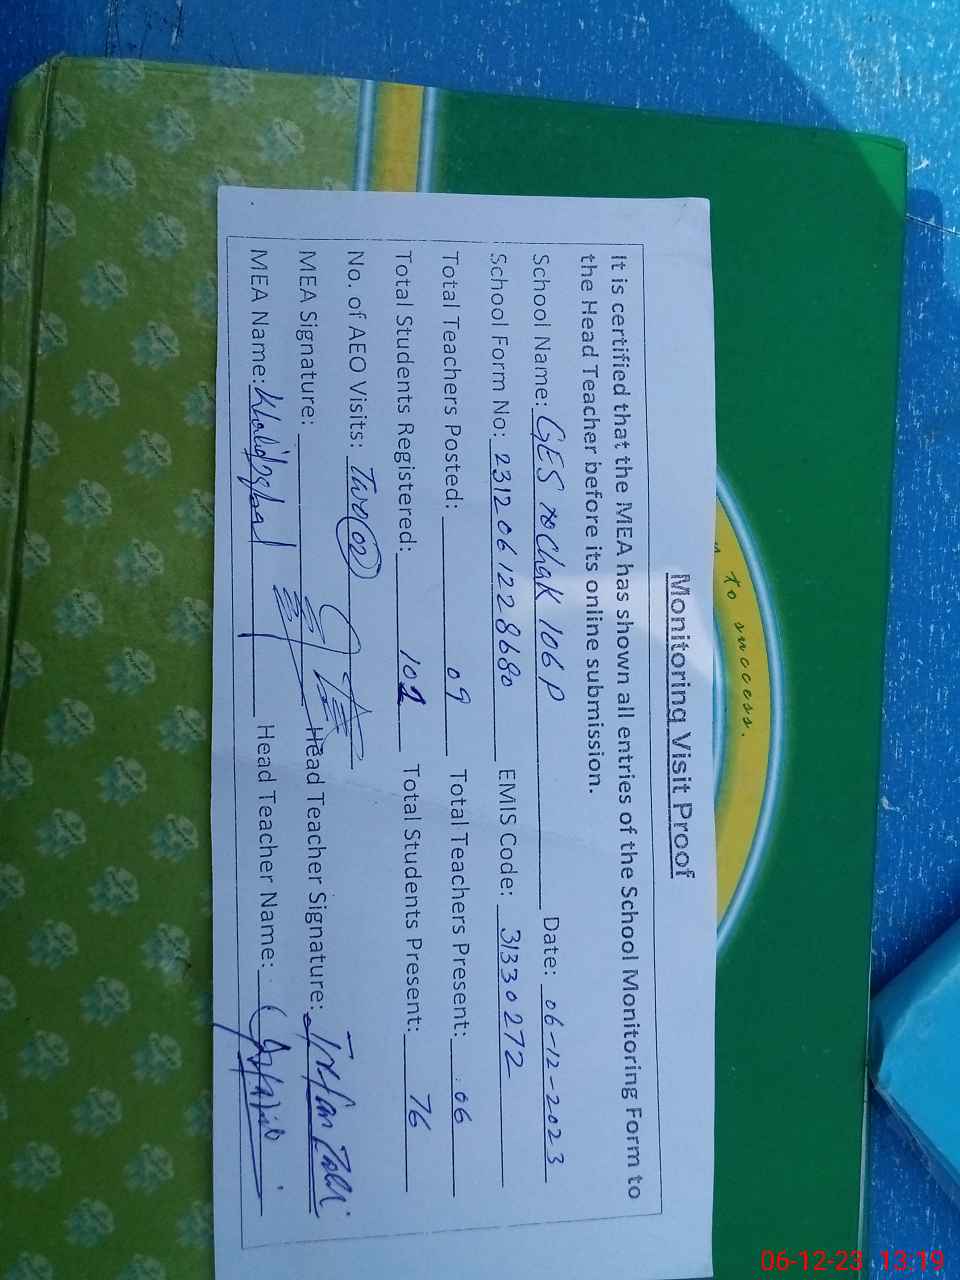 to success.
Monitoring Visit Proof
It is certified that the MEA has shown all entries of the School Monitoring Form to
the Head Teacher before its online submission.
School Name: GES Chak 106 P Date: 06-12-2023
School Form No: 2312061228680 EMIS Code: 31330272
Total Teachers Posted: 09 Total Teachers Present: 06
Total Students Registered: 102 Total Students Present: 76
No. of AEO Visits: Two 02
MEA Signature: Head Teacher Signature: Irfan
MEA Name: Khalid Iqbal Head Teacher Name:
06-12-23 13:19